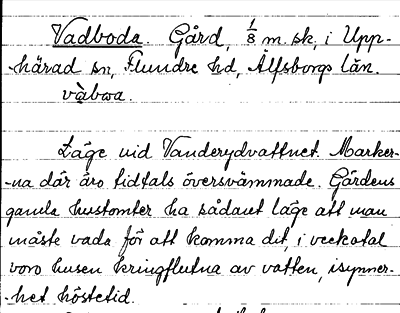 Vadboda. Gård, 1/8 m. sk, i Upp-
-härad sn, Flundre hd, Älfsborgs län.
vàbwa.
Läge vid Vanderydvattnet. Marker-
-na där äro tidtals översvämmade. Gårdens
gamla hustomter ha sådant läge att man
måste vada för att komma dit, i veckotal
voro husen kringflutna av vatten, isynner-
-het höstetid.